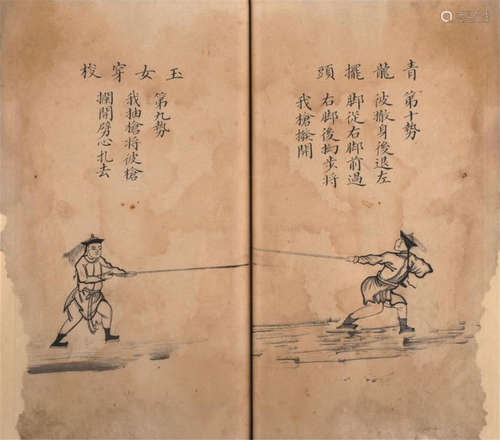 青龍擺頭
第十勢
彼撤身後退左
脚從右脚前過
右脚後掏步將
我槍擬開
玉女穿梭
第九勢
我抽槍將彼槍
攔開劈心扎去